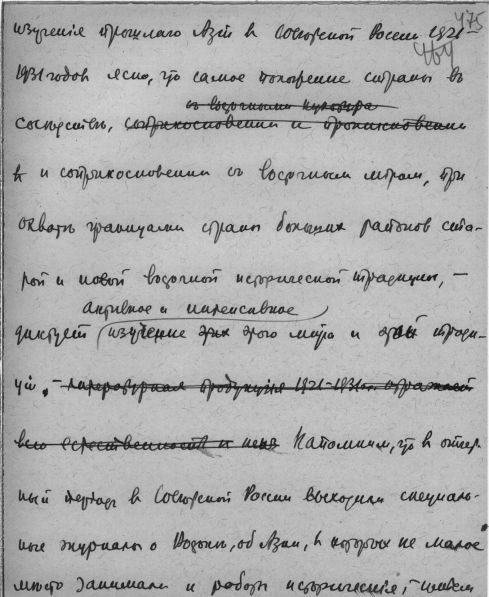 475
464
изученія прошлаго Азіи в Советской России 1921-
1931 годов ясно, что самое положение страны в
с восточными культура
соседстве, соприкосновении и проникновении
и соприкосновении с восточным миром, при
охвате границами страны больших районов ста-
рой и новой восточной исторической традиции, —
активное и интенсивное
диктует изучение этого мира и этой тради-
ціи. — Литературная продукция 1921-1931 гг. отражает
естественность и Напомним, что в отчет-
ный период в Советской России выходили специаль-
ные журналы о Востоке, об Азии, в которых не малое
место занимали и работы историческія, —